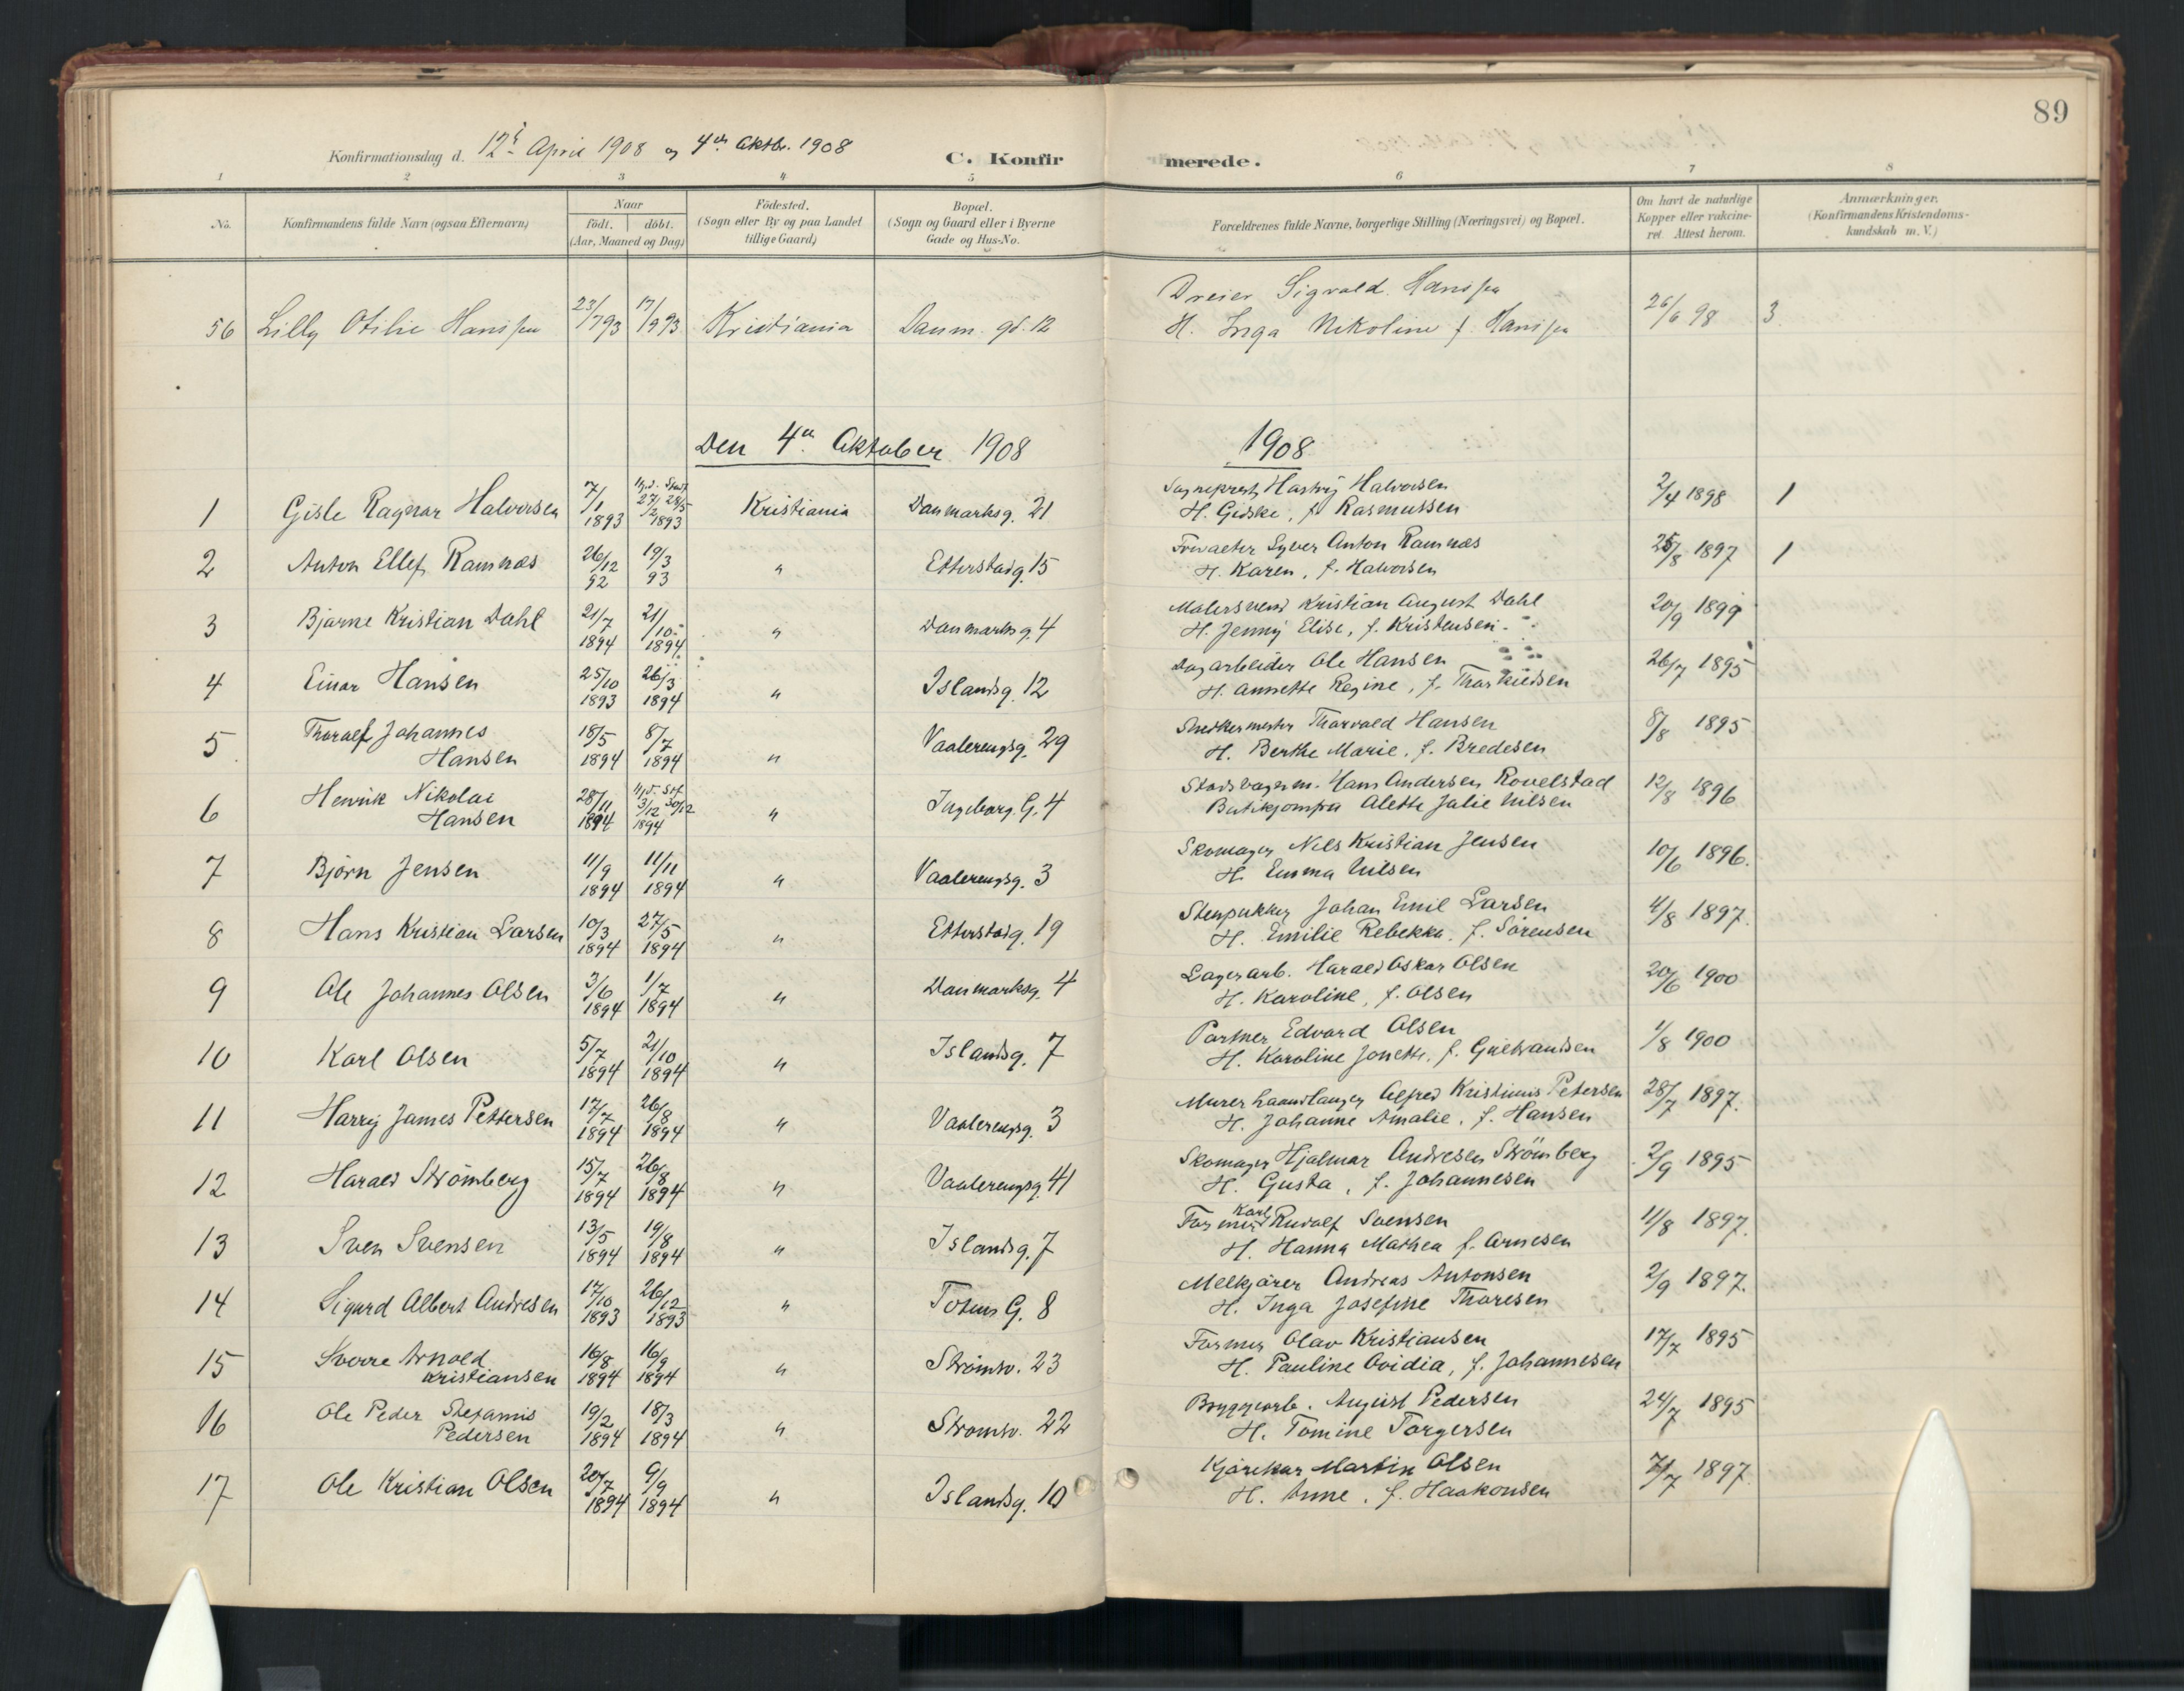 89
Konfirmationsdag d. 12te April 1908 og 4de Oktbr. 1908 C. Konfirmerede.
1 2 3 4 5 6 7 8
No. Konfirmandens fulde Navn (ogsaa Efternavn) Naar födt. döbt. (Aar, Maaned og Dag.) Födested. (Sogn eller By og paa Landet tillige Gaard.) Bopæl. (Sogn og Gaard eller i Byerne Gade og Hus-No. Forældrenes fulde Navne, borgerlige Stilling (Næringsvei) og Bopæl. Om havt de naturlige Kopper eller vakcineret. Attest herom. Anmærkninger. (Konfirmandens Kristendomskundskab m. V.)
56 Lilly Otilie Hanssen 23/7 93 17/9 93 Kristiania Danm. gd. 12 Dreier Sigvald Hanssen 26/6 98 3
H. Inga Nikoline f. Hanssen
Den 4de Oktober 1908 1908
1 Gisle Ragnar Halvorsen 7/1 1893 Kristiania Danmarksg. 21 Sogneprest Hastvig Halvorsen 2/4 1898 1
H. Gidske, f. Rasmussen
2 Anton Ellef Ramnæs 26/12 92 19/3 93 " Etterstadg. 15 Forvalter Syver Anton Ramnæs 25/8 1897 1
H. Karen, f. Halvorsen
3 Bjarne Kristian Dahl 21/7 1894 21/10 1894 " Danmarksg. 4 Malersvend Kristian August Dahl 20/9 1899
H. Jenny Elise, f. Kristensen
4 Einar Hansen 25/10 1893 26/3 1894 " Islandsg. 12 Dagarbeider Ole Hansen 26/7 1895
H. Annette Regine, f. Thorkildsen
5 Thoralf Johannes Hansen 18/5 1894 8/7 1894 " Vaalerengsg. 29 Snedkermester Thorvald Hansen 8/8 1895
H. Berthe Marie, f. Bredesen
6 Henrik Nikolai Hansen 28/11 1894 3/12 30/12 1894 " Ingeborg. G. 4 Hans Andersen Rovelstad 12/8 1896
Butikjomfru Alette Julie Nilsen
7 Bjørn Jensen 11/9 1894 11/11 1894 " Vaalerengsg. 3 Skomager Nils Kristian Jensen 10/6 1896.
H. Emma Nilsen
8 Hans Kristian Larsen 10/3 1894 27/5 1894 " Etterstadg. 19 Stenpukker Johan Emil Larsen 4/8 1897.
H. Emilie Rebekka, f. Sørensen
9 Ole Johannes Olsen 3/6 1894 1/7 1894 " Danmarksg. 4 Lagerarb. Harald Oskar Olsen 20/6 1900
H. Karoline, f. Olsen
10 Karl Olsen 5/7 1894 21/10 1894 " Islandsg. 7 Portner Edvard Olsen 1/8 1900
H. Karoline Jonette, f. Gulbrandsen
11 Harry James Pettersen 17/7 1894 26/8 1894 " Vaalerengsg. 3 Murerhaandlanger Alfred Kristinius Petersen 28/7 1897.
H. Johanne Amalie, f. Hansen
12 Harald Strømberg 15/7 1894 26/8 1894 " Vaalerengsg. 41 Skomager Hjalmar Andresen Strömberg 2/9 1895
H. Gusta, f. Johannesen
13 Sven Svensen 13/5 1894 19/8 1894 " Islandsg. 7 Former Karl Rudolf Svensen 11/8 1897.
H. Hanna Mathea f. Arnesen
14 Sigurd Albert Andresen 17/10 1893 26/12 1893 " Totens G. 8 Melkjører Andreas Antonsen 2/9 1897.
H. Inga Josefine Thoresen
15 Sverre Arnold Kristiansen 16/8 1894 16/9 1894 " Strømsv. 23 Former Olav Kristiansen 17/7 1895
H. Pauline Ovidia, f. Johannesen
16 Ole Peder Stefanus Pedersen 19/2 1894 18/3 1894 " Strømsv. 22 Bryggearb. August Pedersen 24/7 1895
H. Tomine Torgersen
17 Ole Kristian Olsen 20/7 1894 9/9 1894 " Islandsg. 10 Kjørekar Martin Olsen 1897.
H. Anne, f. Haakonsen